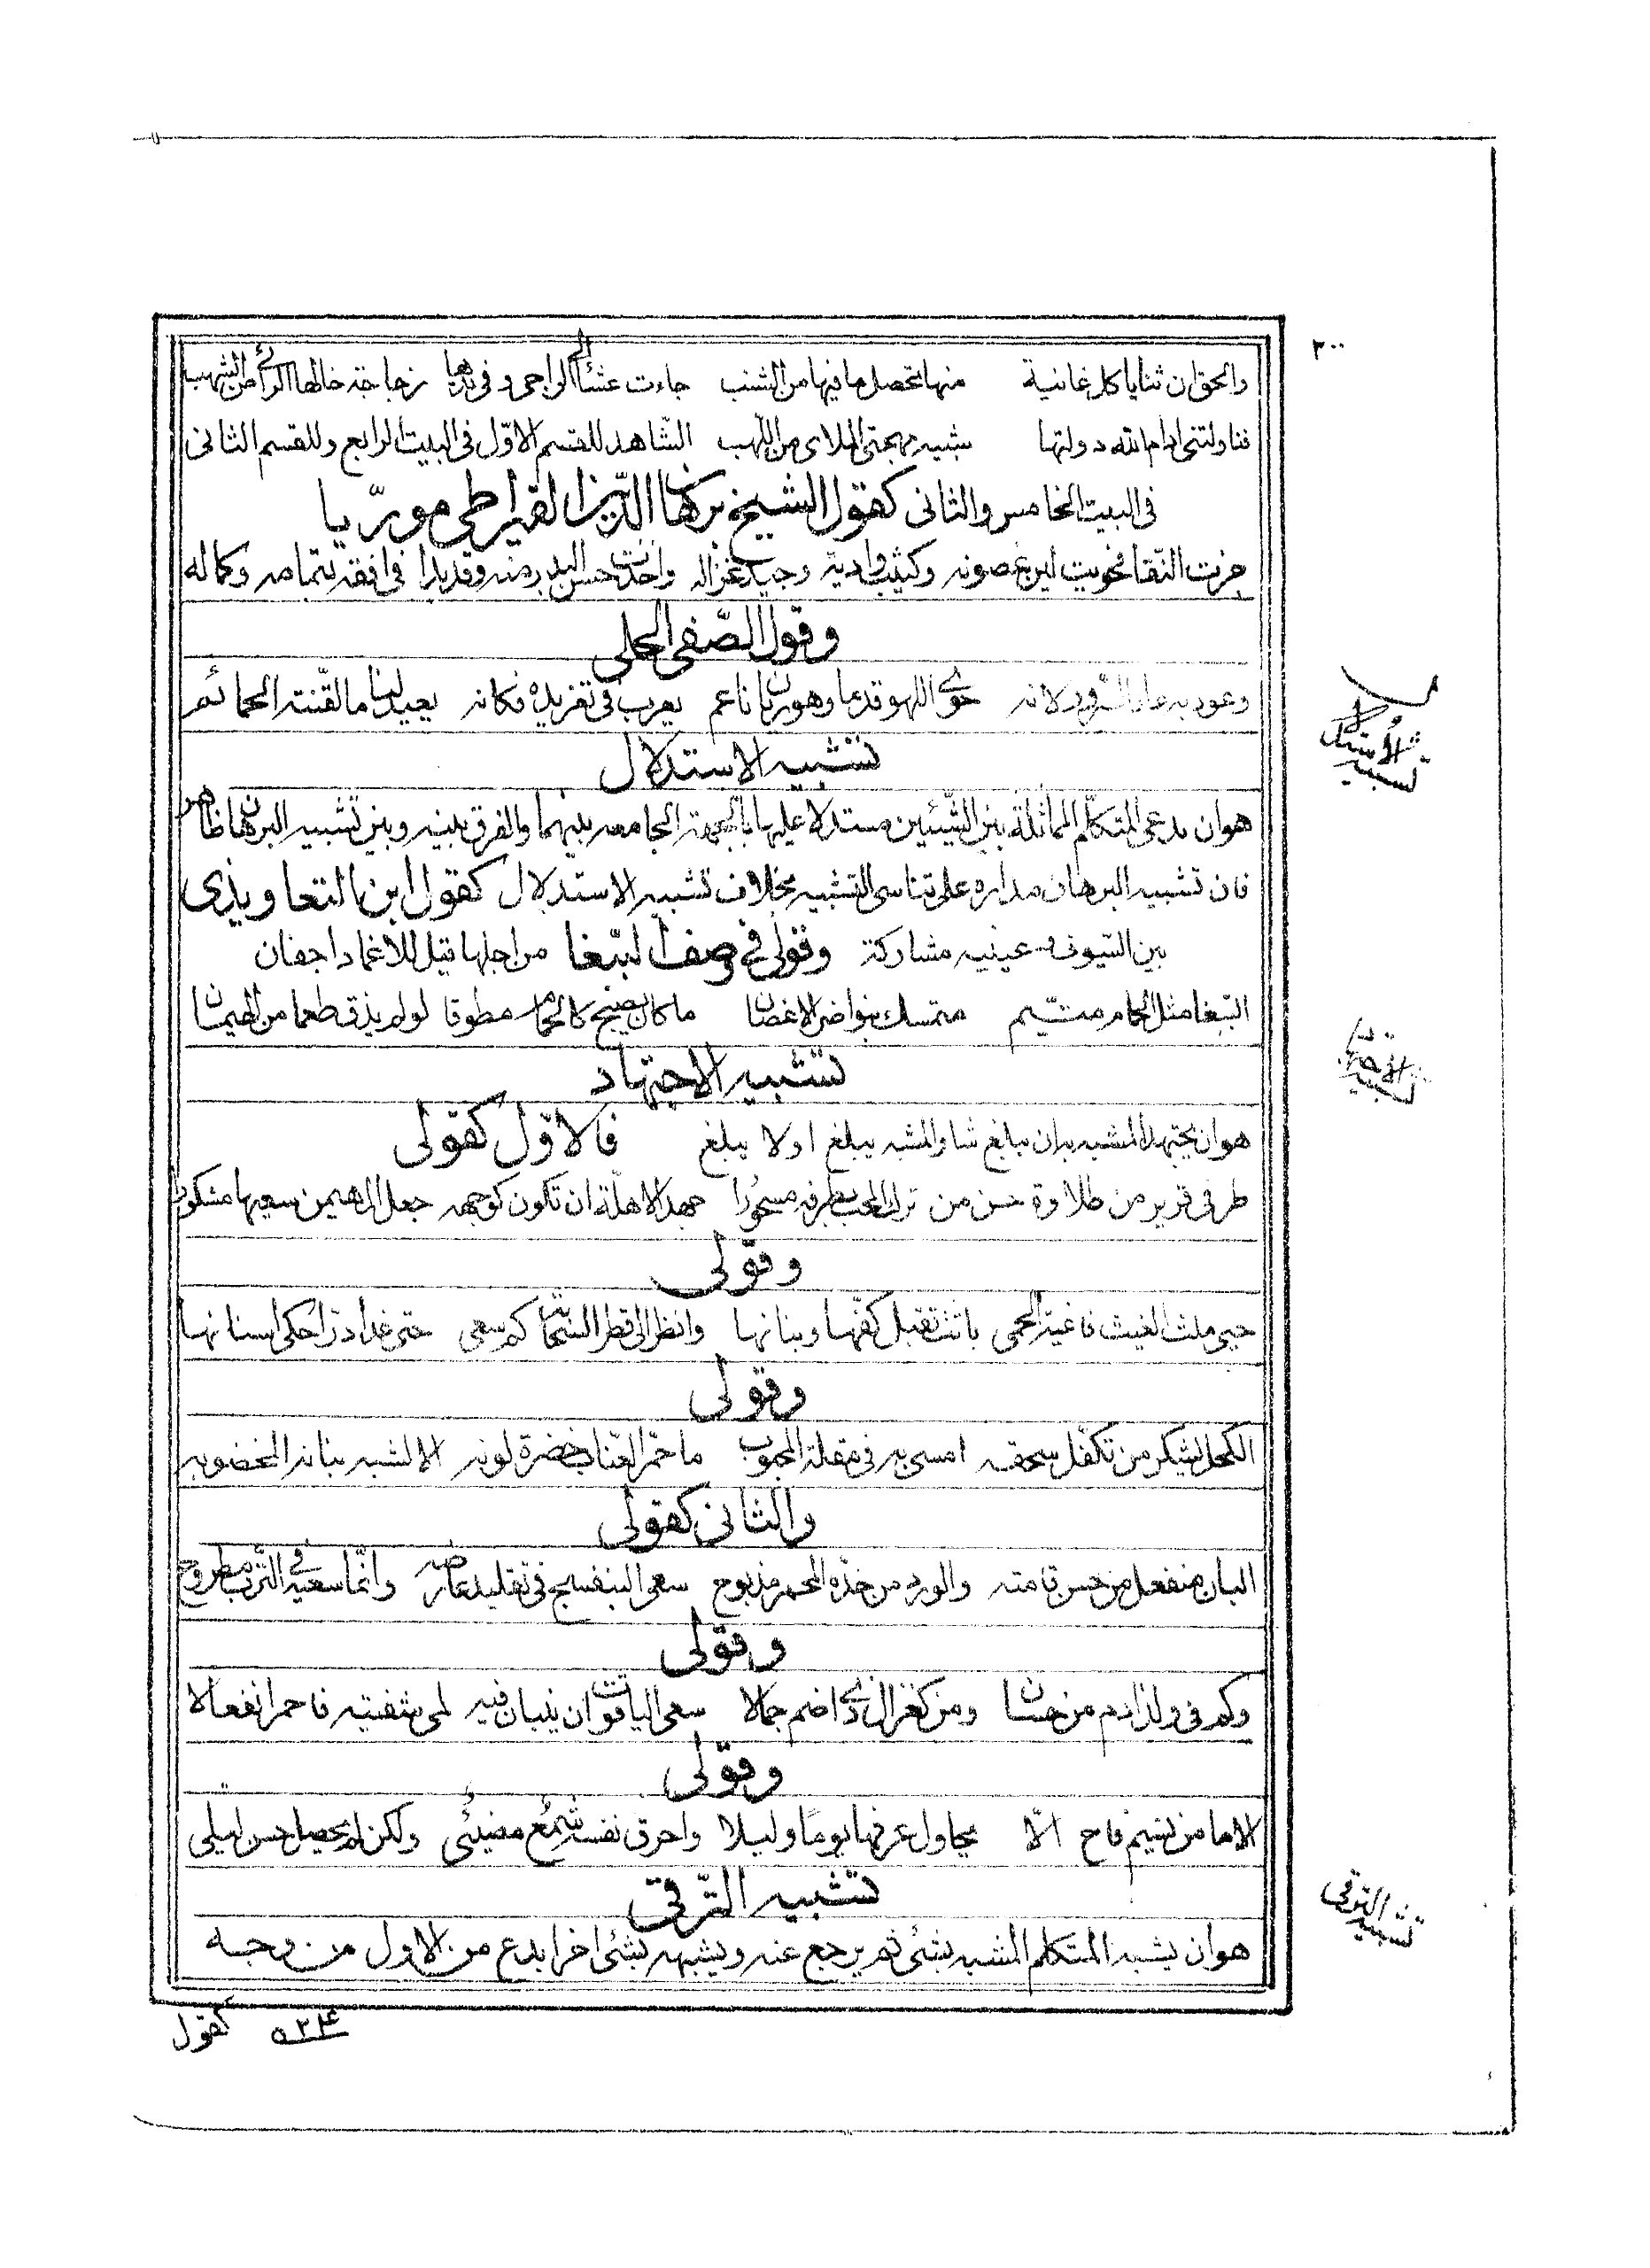 ٣٠٠
والحق ان ثنايا كل غانية منها تحصل ما فيها من الشنب جاءت عشاء الى الراجى وفى يدها زجاجة خالها الرائى من الشهب
فناولتنى ادام الله دولتها شبيه مهجتى الملاى من اللهب الشاهد للقسم الاوّل فى البيت الرابع وللقسم الثانى
فى البيت الخامس والثانى كقول الشيخ برهان الدّين القيراطى مورّيا
حزت النّقا فحويت لين غصونه وكثيب واديه وجيد غزاله واخذت حسن البدر منه وقد بدا فى افقه بتمامه وكماله
وقول الصّفى الحلى
وعود به عاد السّرور لانه حوى اللهو قدما وهو ريان ناعم يغرب فى تغريده فكانه يعيد لنا ما لقّنته الحمائم
تشبيه الاستدلال
تشبيه الاستدلال
هو ان يدعى المتكلّم المماثلة بين الشّيئين مستدلا عليها بالجهة الجامعه بينهما والفرق بينه وبين تشبيه البرهان ظاهر
فان تشبيه البرهان مداره على تناسى التشبيه بخلاف تشبيه الاستدلال كقول ابن التعاويذى
بين السّيوف وعينيه مشاركة من اجلها قيل للاغماد اجفان وقولى فى وصف الببّغا
الببّغا مثل الحمام متيّم متمسك بنواضر الاغصان ما كان يصبح كالحمام مطوقا لو لم يذق طعما من الهيمان
تشبيه الاجتهاد
تشبيه الاجتهاد
هو ان يجتهد المشبه بان يبلغ شاو المشبه به يبلغ او لا يبلغ فالاوّل كقولى
طرفى قرير من طلاوة حسن من ترك المحب بطرفه مسحورا جهد الاهلّة ان تكون كوجهه جعل المهيمن سعيها مشكورا
وقولى
حيى ملث الغيث غانية الحمى باتت تقبل كفّها وبنانها وانظر الى قطر السّحاب كم سعى حتى غدا درّا حكى اسنانها
وقولى
الكحل يشكر من تكفّل سحقه امسى به فى مقلة المحبوب ما حمّر العنّاب خضرة لونه الا لشبه بنانه المخضوب
والثانى كقولى
البان منفعل من حسن قامته والورد من خدّه المحمر مذبوح سعى البنفسج فى تقليد عارضه وانّما سعيه فى التّرب مطروح
وقولى
وكم فى ولد ادم من حسان ومن كغزال ذى اضم جمالا سعى الياقوت ان ينبان فيه لمى شفتيه فاحمر انفعالا
وقولى
الاما من نسيم فاح الّا يحاول عرفها يوما وليلا واحرق نفسه شمع مضيئى ولكن لم يحصل حسن ليلى
تشبيه التّرقى
تشبيه الترقى
هو ان يشبه المتكلم المشبه بشئى ثم يرجع عنه ويشبهه بشئى اخر ابدع من الاول من وجه
كقول ٥٢٤